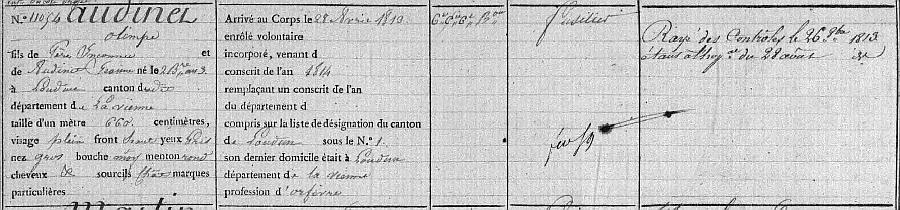 N.º 11054 audinet
olempe
fils de Père Inconnu et
de Audinet Jeanne né le 2 Bre an 3
à Loudun canton dudit
département de La vienne
taille d'un mètre 660 centimètres,
visage plein front haut yeux Gris
nez gros bouche moy menton rond
cheveux & sourcils Chat marques
particulières
Arrivé au Corps le 28 Avril 1813
enrôlé volontaire
incorporé, venant d
conscrit de l'an 1814
remplaçant un conscrit de l'an
du département d
compris sur la liste de désignation du canton
de Loudun sous le N.º 1
son dernier domicile était à Loudun
département de la vienne
profession d'orfèvre
6e 6e 6e Bon
fusilier
Rayé des Controles le 26 9bre 1813
étant à l'hop. du 28 août